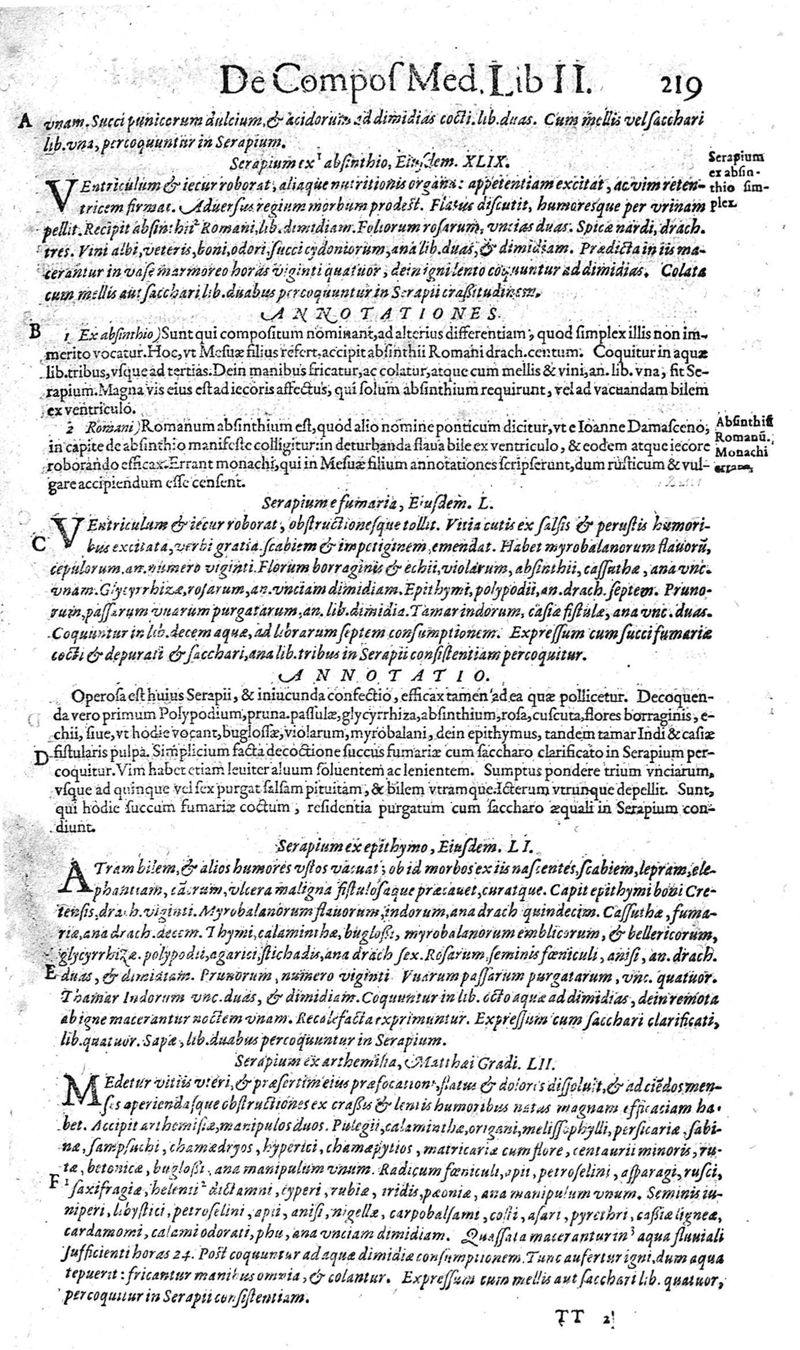 De Compos Med. Lib II. 219
A vnam. Succi punicorum dulcium, & acidorum ad dimidias cocti. lib. duas. Cum mellis vel sacchari
lib. vna, percoquuntur in Serapium.
Serapium ex¹ absinthio, Eiusdem. XLIX.
Serapium
ex absin-
thio sim-
plex.
VEntriculum & iecur roborat, aliaque nutritionis organa: appetentiam excitat, ac vim reten-
tricem firmat. Aduersus regium morbum prodest. Flatus discutit, humoresque per vrinam
pellit. Recipit absinthii² Romani, lib. dimidiam. Foliorum rosarum, vncias duas. Spicæ nardi, drach.
tres. Vini albi, veteris, boni, odori, succi cydoniorum, ana lib. duas, & dimidiam. Prædicta in iis ma-
cerantur in vase marmoreo horas viginti quatuor, dein igni lento coquuntur ad dimidias. Colata
cum mellis aut sacchari lib. duabus percoquuntur in Serapii crassitudinem.
ANNOTATIONES.
B 1 Ex absinthio) Sunt qui compositum nominant, ad alterius differentiam, quod simplex illis non im-
merito vocatur. Hoc, vt Mesuæ filius refert, accipit absinthii Romani drach. centum. Coquitur in aquæ
lib. tribus, vsque ad tertias. Dein manibus fricatur, ac colatur, atque cum mellis & vini, an. lib. vna, fit Se-
rapium. Magna vis eius est ad iecoris affectus, qui solum absinthium requirunt, vel ad vacuandam bilem
ex ventriculo.
2 Romani) Romanum absinthium est, quod alio nomine ponticum dicitur, vt e Ioanne Damasceno,
in capite de absinthio manifeste colligitur: in deturbanda flaua bile ex ventriculo, & eodem atque iecore
roborando efficax. Errant monachi, qui in Mesuæ filium annotationes scripserunt, dum rusticum & vul-
gare accipiendum esse censent.
Absinthiū
Romanū.
Monachi
errant,
Serapium e fumaria, Eiusdem. L.
VEntriculum & iecur roborat, obstructionesque tollit. Vitia cutis ex salsis & perustis humori-
C bus excitata, verbi gratia. scabiem & impetiginem, emendat. Habet myrobalanorum flauorū,
cepulorum. an. numero viginti. Florum borraginis & echii, violarum, absinthii, cassuthæ, ana vnc.
vnam. Glycyrrhizæ, rosarum, an. vnciam dimidiam. Epithymi, polypodii, an. drach. septem. Pruno-
rum, passarum vuarum purgatarum, an. lib. dimidia. Tamarindorum, casiæ fistulæ, ana vnc. duas.
Coquuntur in lib. decem aquæ, ad librarum septem consumptionem. Expressum cum succi fumariæ
cocti & depurati & sacchari, ana lib. tribus in Serapii consistentiam percoquitur.
ANNOTATIO.
Operosa est huius Serapii, & iniucunda confectio, efficax tamen ad ea quæ pollicetur. Decoquen-
da vero primum Polypodium, pruna. passulæ, glycyrrhiza, absinthium, rosa, cuscuta, flores borraginis, e-
chii, siue, vt hodie vocant, buglossæ, violarum, myrobalani, dein epithymus, tandem tamar Indi & casiæ
D fistularis pulpa. Simplicium facta decoctione succus fumariæ cum saccharo clarificato in Serapium per-
coquitur. Vim habet etiam leuiter aluum soluentem ac lenientem. Sumptus pondere trium vnciarum,
vsque ad quinque vel sex purgat salsam pituitam, & bilem vtramque. Icterum vtrunque depellit. Sunt,
qui hodie succum fumariæ coctum, residentia purgatum cum saccharo æquali in Serapium con-
diunt.
Serapium ex epithymo, Eiusdem. LI.
ATram bilem, & alios humores vstos vacuat, ob id morbos ex iis nascentes, scabiem, lepram, ele-
phantiam, cācrum, vlcera maligna fistulosaque præcauet, curatque. Capit epithymi boni Cre-
tensis, drach. viginti. Myrobalanorum flauorum, indorum, ana drach quindecim. Cassuthæ, fuma-
riæ, ana drach. decem. Thymi, calaminthæ, buglossi, myrobalanorum emblicorum, & bellericorum,
glycyrrhizæ. polypodii, agarici, stichadis, ana drach sex. Rosarum, seminis fœniculi, anisi, an. drach.
E duas, & dimidiam. Prunorum, numero viginti Vuarum passarum purgatarum, vnc. quatuor.
Thamar Indorum vnc. duas, & dimidiam. Coquuntur in lib. octo aquæ ad dimidias, dein remota
ab igne macerantur noctem vnam. Recalefacta exprimuntur. Expressum cum sacchari clarificati,
lib. quatuor. Sapæ, lib. duabus percoquuntur in Serapium.
Serapium ex arthemisia, Matthæi Gradi. LII.
MEdetur vitiis vteri, & præsertim eius præfocationi, flatus & dolores dissoluit, & ad ciēdos men-
ses aperiendasque obstructiones ex crassis & lentis humoribus natas magnam efficaciam ha-
bet. Accipit arthemisiæ, manipulos duos. Pulegii, calaminthæ, origani, melissophylli, persicariæ, sabi-
næ, sampsuchi, chamædryos, hyperici, chamæpytios, matricariæ cum flore, centaurii minoris, ru-
tæ, betonicæ, buglossi, ana manipulum vnum. Radicum fœniculi, apii, petroselini, asparagi, rusci,
F ¹saxifragiæ, helenii² dictamni, cyperi, rubiæ, iridis, pæoniæ, ana manipulum vnum. Seminis iu-
niperi, libystici, petroselini, apii, anisi, nigellæ, carpobalsami, costi, asari, pyrethri, cassiæ ligneæ,
cardamomi, calami odorati, phu, ana vnciam dimidiam. Quassata macerantur in³ aqua fluuiali
sufficienti horas 24. Post coquuntur ad aquæ dimidiæ consumptionem. Tunc aufertur igni, dum aqua
tepuerit: fricantur manibus omnia, & colantur. Expressum cum mellis aut sacchari lib. quatuor,
percoquitur in Serapii consistentiam.
TT 2